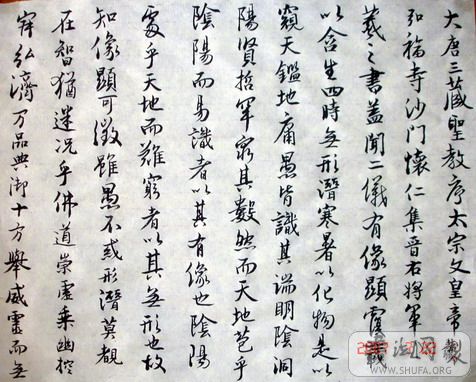 大唐三藏聖教序太宗文皇帝製
弘福寺沙門懷仁集晉右將軍
羲之書蓋聞二儀有像顯覆載
以含生四時無形潛寒暑以化物是以
窺天鑑地庸愚皆識其端明陰洞
陽賢哲罕窮其數然而天地苞乎
陰陽而易識者以其有像也陰陽
處乎天地而難窮者以其無形也故
知像顯可徵雖愚不惑形潛莫覩
在智猶迷況乎佛道崇虛乘幽控
寂弘濟万品典御十方舉威靈而無
WWW.SHUFA.ORG